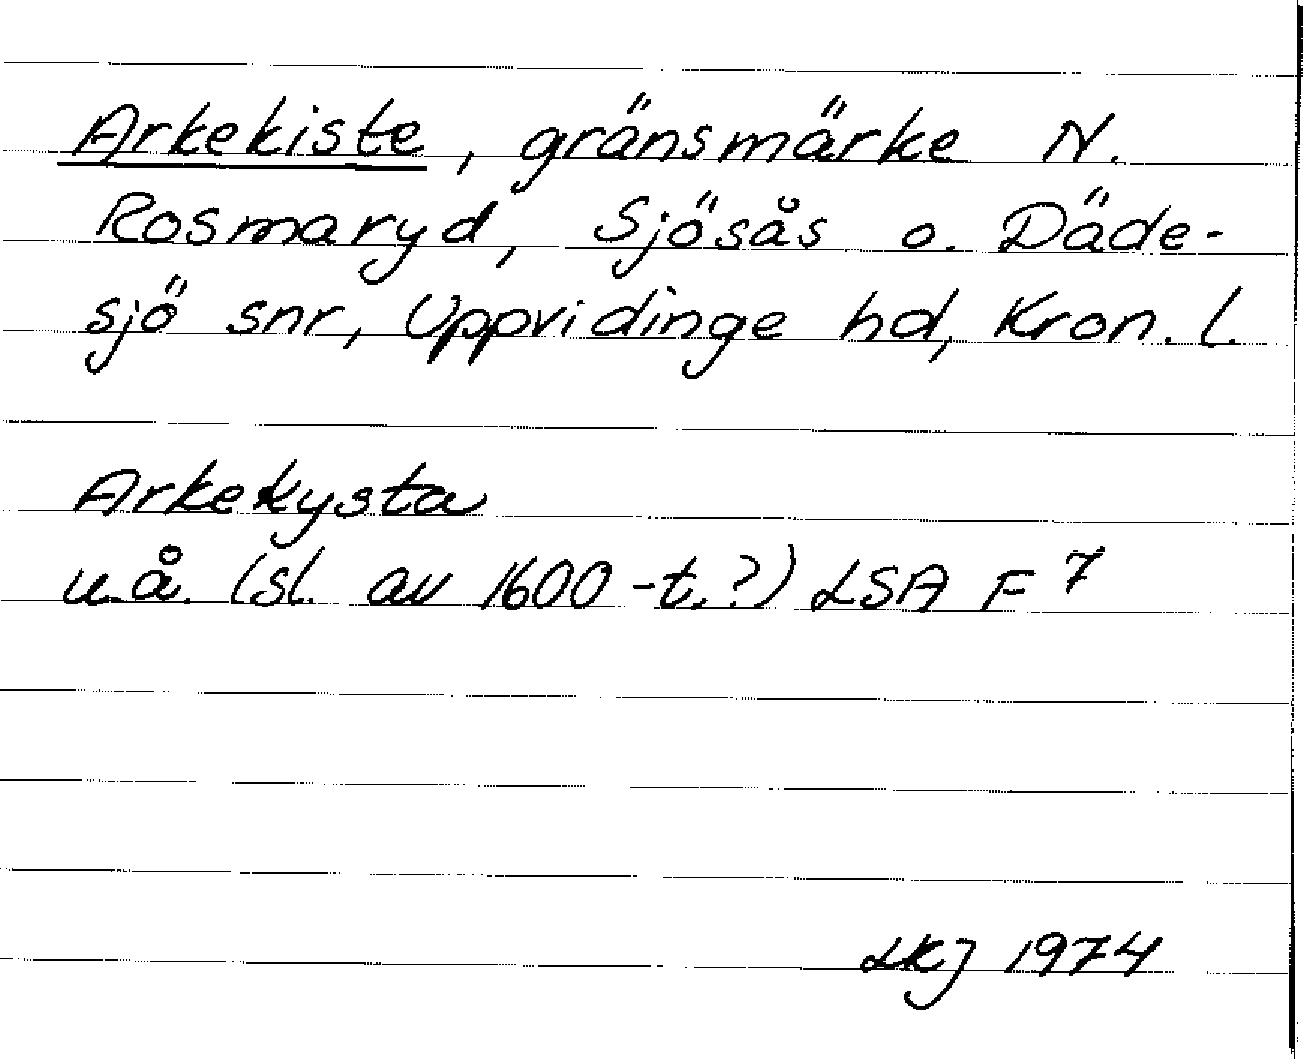 Arkekiste, gränsmärke N.
Rosmaryd, Sjösås o. Däde-
sjö snr, Uppvidinge hd, Kron. l.
Arkekysta
u.å. (sl. av 1600-t.?) LSA F 7
LKJ 1974